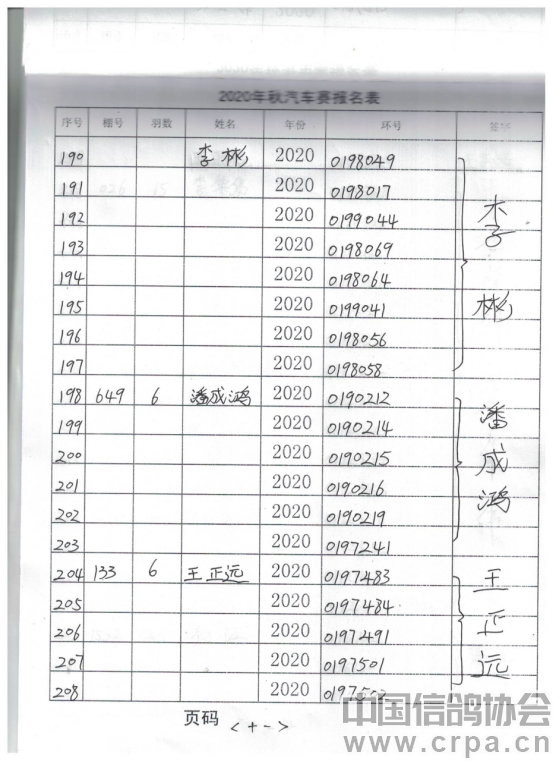 2020年秋汽车赛报名表
序号 棚号 羽数 姓名 年份 环号 签字
190 李彬 2020 0198049 李彬
191 2020 0198017
192 2020 0199044
193 2020 0198069
194 2020 0198064
195 2020 0199041
196 2020 0198056
197 2020 0198058
198 649 6 潘成鸿 2020 0190212 潘成鸿
199 2020 0190214
200 2020 0190215
201 2020 0190216
202 2020 0190219
203 2020 0197241
204 133 6 王正远 2020 0197483 王正远
205 2020 0197484
206 2020 0197491
207 2020 0197501
208 2020
页码 <十一>
中国信鸽协会
www.crpa.cn